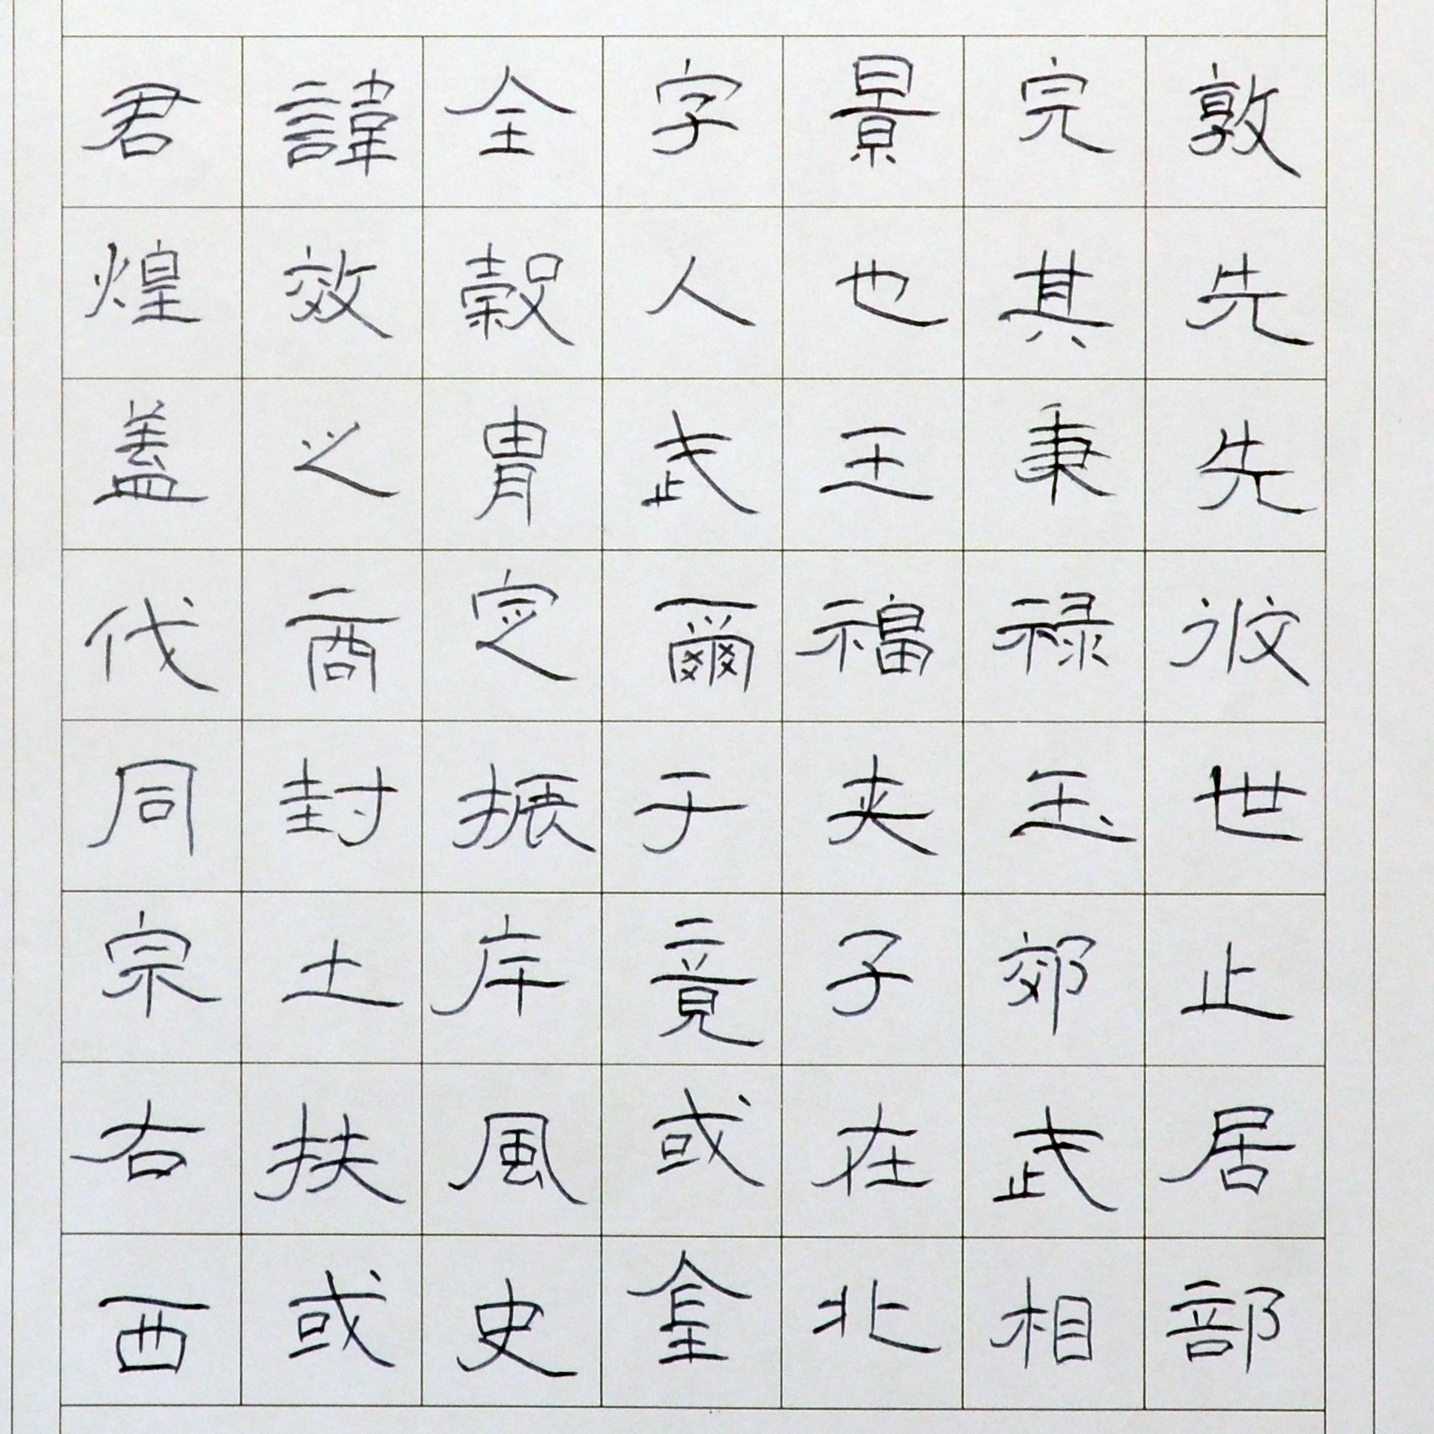 君諱全字景完敦
煌效穀人也其先
蓋之胄武王秉先
伐商定爾福祿攸
同封振于夾玉世
宗土斥竟子郊止
右扶風或在武居
西或史金北相部